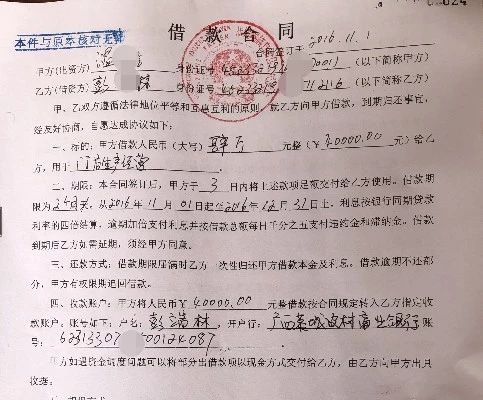 本件与原本核对无异
借款合同
合同签订于2016.11.1
甲方(出资方) 身份证号 (以下简称甲方)
乙方(借款方) 彭 林 身份证号 11216 (以下简称乙方)
甲、乙双方遵循法律地位平等和互惠互利的原则，就乙方向甲方借款，到期归还事宜，
经友好协商，自愿达成协议如下：
一、标的：甲方借款人民币(大写)肆万 元整(￥40000.00 元)给乙
方，用于门店生产经营
二、期限：本合同签订后，甲方于3日内将上述款项足额交付给乙方使用。借款期
限为2个月，从2016年11月01日起至2016年12月31日止，利息按银行同期贷款
利率的四倍结算，逾期加倍支付利息并按借款总额每日千分之五支付违约金和滞纳金。借款
到期后乙方如需延期，须经甲方同意。
三、还款方式：借款期限届满时乙方一次性归还甲方借款本金及利息。借款逾期不还部
分，甲方有权限期追回借款。
四、收款账户：甲方将人民币￥40000.00 元整借款按合同规定转入乙方指定收
款账户。账号如下：户名：彭 林，开户行：广西 农村商业银行 账
号：62313307 00124087
甲方如遇资金调度问题可以将部分出借款项以现金方式交付给乙方，由乙方向甲方出具
收据。